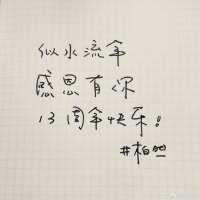 似水流年
感恩有你
13周年快乐!
#柏然